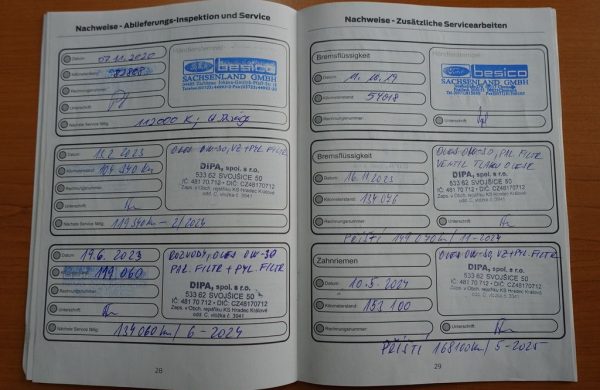 Nachweise - Ablieferungs-Inspektion und Service
Datum
Kilometerstand
Rechnungsnummer
Unterschrift
Nächste Service fällig:
112000 K
Händlerstempel
Ford besico
SACHSENLAND GMBH
Datum 15.2.2023
Kilometerstand 104 940 Km
Rechnungsnummer
Unterschrift
Nächste Service fällig: 119 940 km - 2/2024
OLEJ OW-30, VZ + PYL. FILTR
DIPA, spol. s r.o.
533 62 SVOJŠICE 50
IČ: 481 70 712 · DIČ: CZ48170712
Zaps. v Obch. rejstříku KS Hradec Králové
odd. C, vložka č. 3941
Datum 19.6. 2023
119 060
Rechnungsnummer
Unterschrift
Nächste Service fällig: 134 060 km / 6 - 2024
ROZVODY, OLEJ OW-30
PAL. FILTR + PYL. FILTR
DIPA, spol. s r.o.
533 62 SVOJŠICE 50
IČ: 481 70 712 · DIČ: CZ48170712
Zaps. v Obch. rejstříku KS Hradec Králové
odd. C, vložka č. 3941
28
Nachweise - Zusätzliche Servicearbeiten
Bremsflüssigkeit
Datum 11. 10. 19
Kilometerstand 54018
Rechnungsnummer
Ford besico
SACHSENLAND GMBH
Unterschrift
Bremsflüssigkeit
Datum 16. 11. 2023
Kilometerstand 134 076
Rechnungsnummer
OLEJ OW-30, PAL. FILTR
VENTIL TLAKU OLEJE
DIPA, spol. s r.o.
533 62 SVOJŠICE 50
IČ: 481 70 712 · DIČ: CZ48170712
Zaps. v Obch. rejstříku KS Hradec Králové
odd. C, vložka č. 3941
Unterschrift
PŘÍŠTÍ 149 070 km / 11 - 2024
Zahnriemen
Datum 10. 5. 2024
Kilometerstand 153 100
Rechnungsnummer
OLEJ OW-30, VZ + PYL. FILTR
DIPA, spol. s r.o.
533 62 SVOJŠICE 50
IČ: 481 70 712 · DIČ: CZ48170712
Zaps. v Obch. rejstříku KS Hradec Králové
odd. C, vložka č. 3941
Unterschrift
PŘÍŠTÍ 168100 km / 5 - 2025
29